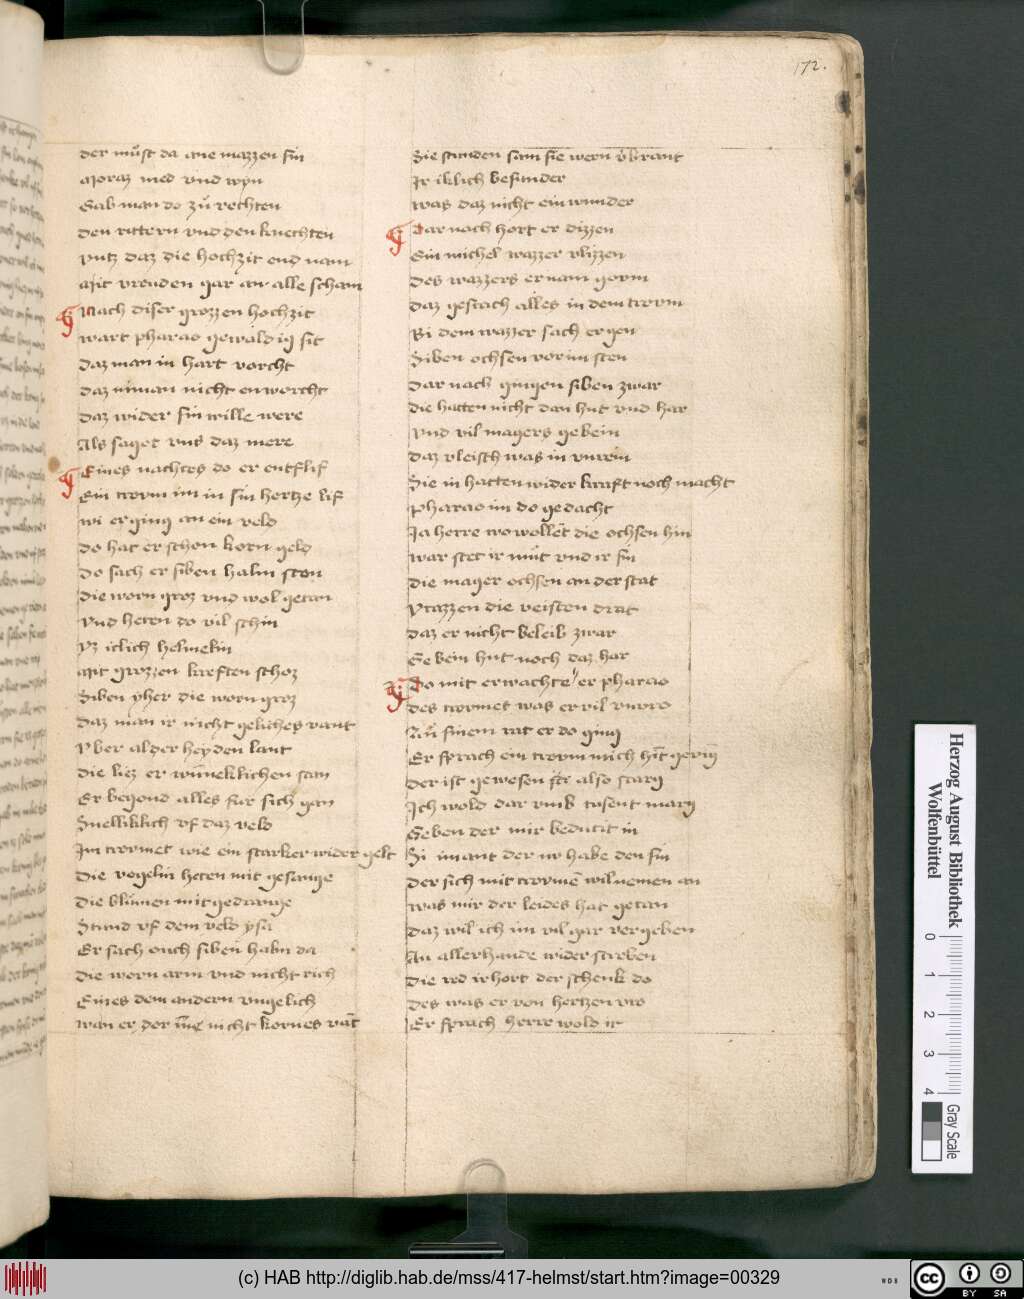 172.
der muͦst da ane mazzen sin
Moraz med vnd wyn
Gab man do zuͦ rechten
den rittern vnd den knechten
vntz daz die hochzit end nam
Mit vreuden gar an alle scham
Nach diser grozzen hochzit
wart pharao gewaldig sit
daz man in hart vorcht
daz niman nicht enworcht
daz wider sin wille were
Als saget vns daz mere
Eines nachtes do er entslif
Ein trovm im in sin hertze lif
wi er ging an ein veld
do hat er schon korn geld
do sach er siben halm sten
die worn groz vnd wol getan
vnd heten do vil schin
yz iclich helmelin
Mit grozzen kreften schoz
Siben yher die worn groz
daz man ir nicht geliches vant
vber al der heyden lant
die liez er wunneklichen stan
Er begond alles fur sich gan
Snelliklich vf daz veld
Im trovmet wie ein starker wider gelt
die vogelin heten mit gesange
die blumen mit gedrange
Stund vf dem veld ysa
Er sach ouch siben halm da
die worn arm vnd nicht rich
Eines dem andern vngelich
wan er der me nicht kornes vat
Sie stunden sam sie wern vͦbrant
Ir iklich besunder
was daz nicht ein wunder
Dar nach hort er dizzen
Ein michel wazzer vlizzen
des wazzers er nam govm
daz geschach alles in dem trovm
Bi dem wazzer sach er gen
Siben ochsen vor im sten
dar nach gingen siben zwar
die hatten nicht dan hut vnd har
vnd vil magers gebein
daz vleisch was in vnrein
Sie in hatten wider kraft noch macht
pharao im do gedacht
Ja herre wo wollet die ochsen hin
war stet ir muͦt vnd ir sin
die mager ochsen an der stat
vrazzen die veisten drat
daz er nicht beleib zwar
Gebein hut noch daz har
Do mit erwachte er pharao
des trovmes was er vil vnvro
Zuͦ sinem rat er do ging
Er sprach ein trovm mich hit gevig
der ist gewesen also starg
Ich wold dar vmb tusent marg
Geben der mir bedutit in
Si imant der nv habe den sin
der sich mit trovmē wil nemen an
was mir der leides hat getan
daz wil ich im vil gar vergeben
An allerhande wider streben
die red irhort der schenk do
des was er von hertzen vro
Er sprach herre wold ir
Herzog August Bibliothek
Wolfenbüttel
0
1
2
3
4
Gray Scale
(c) HAB http://diglib.hab.de/mss/417-helmst/start.htm?image=00329
WDB
cc
BY SA